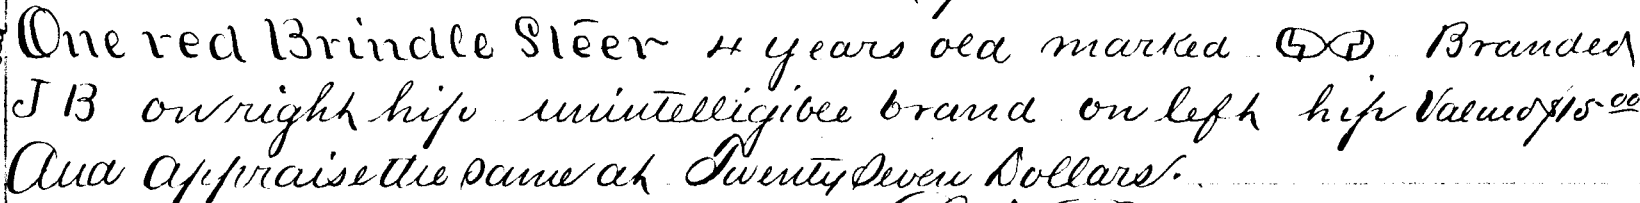 One red Brindle Steer 4 years old marked Branded
J B on right hip unintelligible brand on left hip Valued $15 00
And appraise the same at Twenty Seven Dollars.